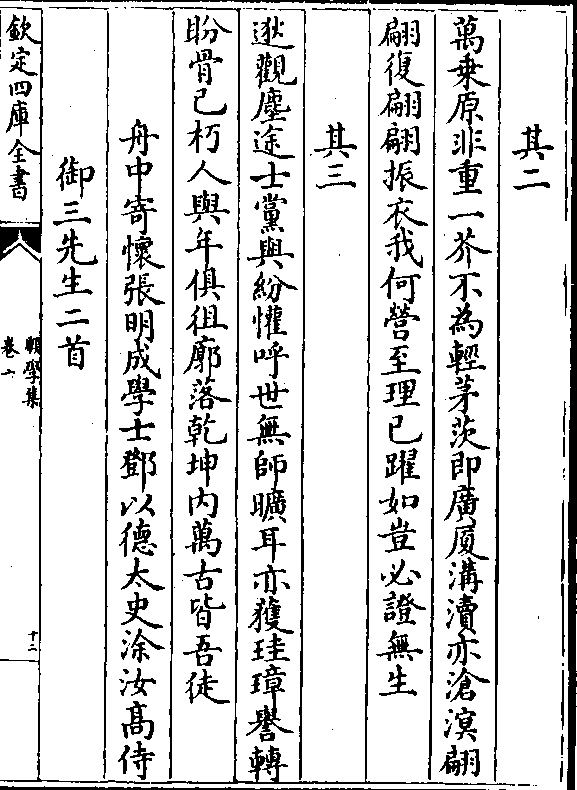 其二
萬乗原非重一芥不為輕茅茨即廣厦溝瀆亦滄溟翩
翩復翩翩振衣我何營至理已躍如豈必證無生
其三
逖觀塵途士黨與紛懽呼世無師曠耳亦獲珪璋譽轉
盼骨已朽人與年俱徂廓落乾坤內萬古皆吾徒
舟中寄懐張明成學士鄧以德太史涂汝髙侍
御三先生二首
欽定四庫全書
願學集
卷一
十二